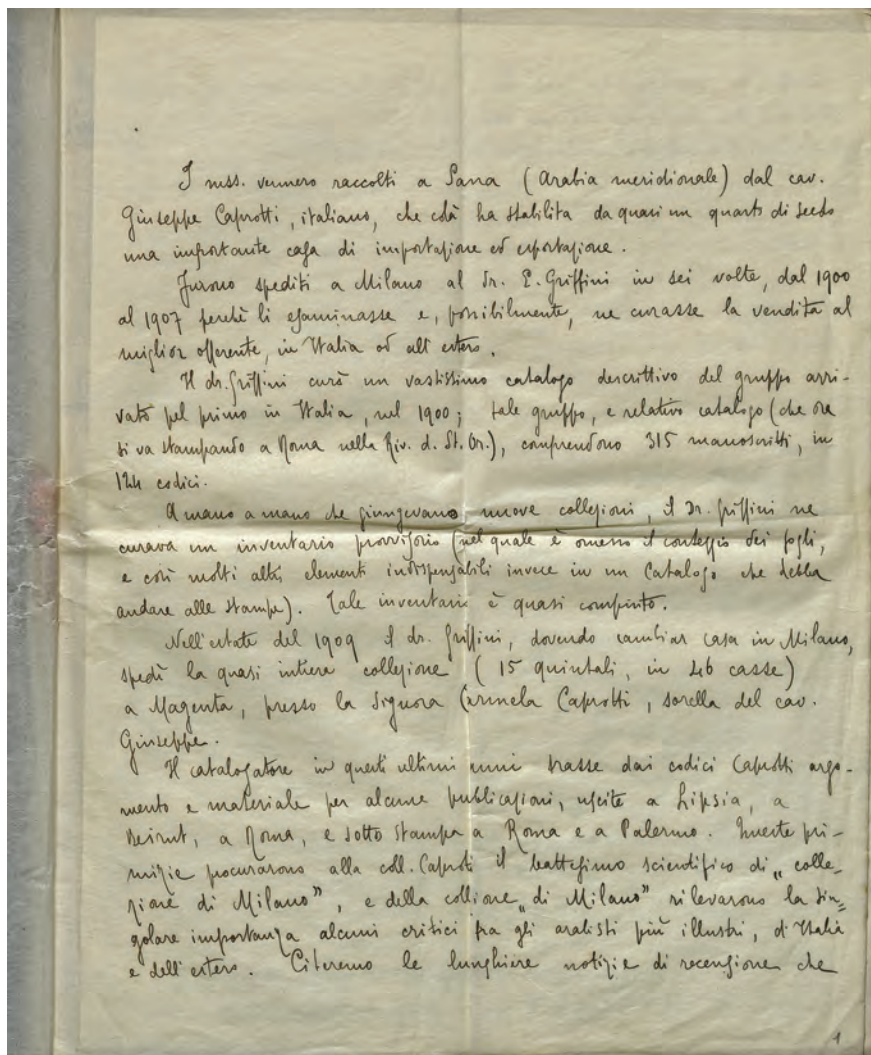 I mss. vennero raccolti a Sana (Arabia meridionale) dal cav.
Giuseppe Caprotti, italiano, che colà ha stabilita da quasi un quarto di secolo
una importante casa di importazione ed esportazione.
Furono spediti a Milano al Dr. E. Griffini in sei volte, dal 1900
al 1907 perchè li esaminasse e, possibilmente, ne curasse la vendita al
miglior offerente, in Italia od all'estero.
Il dr. Griffini curò un vastissimo catalogo descrittivo del gruppo arri-
vato pel primo in Italia, nel 1900; tale gruppo, e relativo catalogo (che ora
si va stampando a Roma nella Riv. d. St. Or.), comprendono 315 manoscritti, in
124 codici.
A mano a mano che giungevano nuove collezioni, il Dr. Griffini ne
curava un inventario provvisorio (nel quale è omesso il conteggio dei fogli,
e così molti altri elementi indispensabili invece in un Catalogo che debba
andare alle stampe). Tale inventario è quasi compiuto.
Nell'estate del 1909 il dr. Griffini, dovendo cambiar casa in Milano,
spedì la quasi intiera collezione (15 quintali, in 46 casse)
a Magenta, presso la Signora Carmela Caprotti, sorella del cav.
Giuseppe.
Il catalogatore in questi ultimi anni trasse dai codici Caprotti argo-
mento e materiale per alcune pubblicazioni, uscite a Lipsia, a
Beirut, a Roma, e sotto stampa a Roma e a Palermo. Queste pri-
mizie procurarono alla coll. Caproti il battesimo scientifico di „colle-
zione di Milano”, e della collione „di Milano” rilevarono la sin-
golare importanza alcuni critici fra gli arabisti più illustri, d'Italia
e dell'estero. Citeremo le lunghiere notizie di recensione che
1